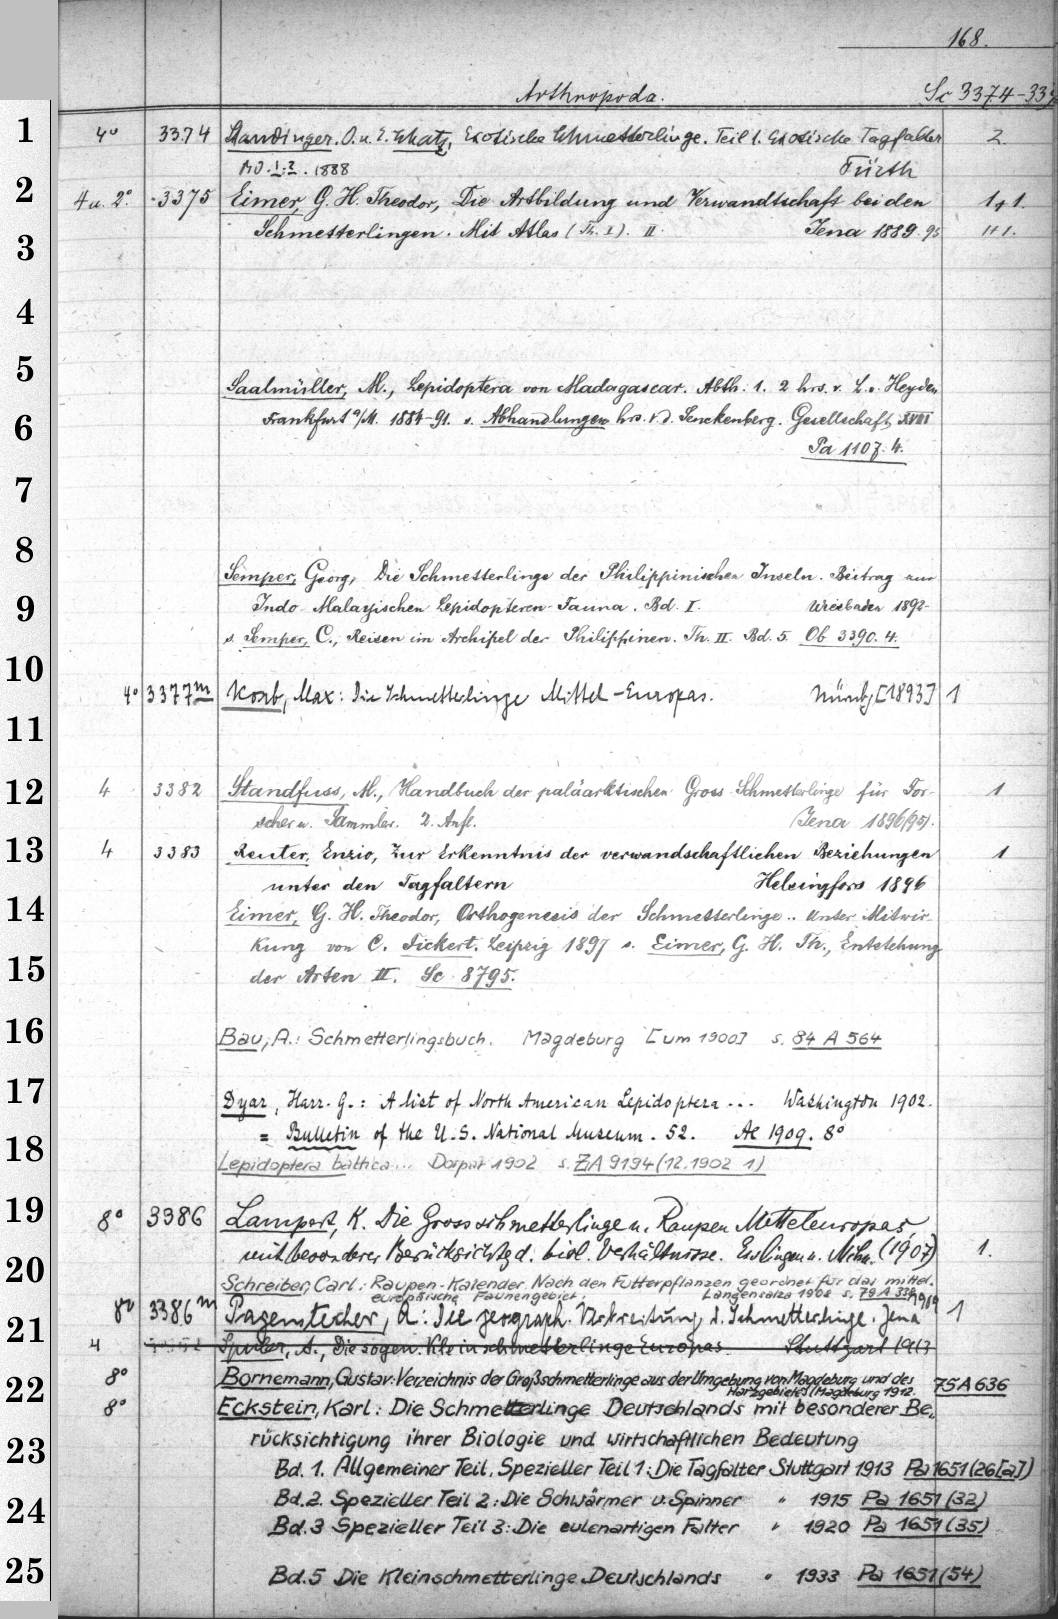 168.
Arthropoda. Sc 3374-339
1 4° 3374 Staudinger. O. u. E. Schatz, Exotische Schmetterlinge. Teil 1. Exotische Tagfalter 2.
Bd. 1. 2. 1888 Fürth
2 4 u. 2° 3375 Eimer, G. H. Theodor, Die Artbildung und Verwandtschaft bei den 1+1.
3 Schmetterlingen. Mit Atlas (Th. I). II. Jena 1889. 95 1+1.
4
5 Saalmüller, M., Lepidoptera von Madagascar. Abth. 1. 2 hrs. v. L. v. Heyden
6 Frankfurt a/M. 1884-91. s. Abhandlungen hrs. v. d. Senckenberg. Gesellschaft, XVIII
Pa 1107. 4.
7
8 Semper, Georg, Die Schmetterlinge der Philippinischen Inseln. Beitrag zur
9 Indo-Malayischen Lepidopteren-Fauna. Bd. I. Wiesbaden 1892-
s. Semper, C., Reisen im Archipel der Philippinen. Th. II Bd. 5. Ob 3390. 4.
10 4° 3377m Korb, Max: Die Schmetterlinge Mittel-Europas. Nürnbg [1893] 1
11
12 4 3382 Standfuss, M., Handbuch der paläarktischen Gross-Schmetterlinge für For- 1
scher u. Sammler. 2. Aufl. Jena 1896(95).
13 4 3383 Reuter, Enzio, Zur Erkenntnis der verwandschaftlichen Beziehungen 1
unter den Tagfaltern Helsingfors 1896
14 Eimer, G. H. Theodor, Orthogenesis der Schmetterlinge.. Unter Mitwir-
kung von C. Fickert. Leipzig 1897 s. Eimer, G. H. Th., Entstehung
15 der Arten II. Sc 8795.
16 Bau, A.: Schmetterlingsbuch. Magdeburg [um 1900] s. 84 A 564
17 Dyar, Harr. G.: A list of North American Lepidoptera ... Washington 1902.
18 = Bulletin of the U.S. National Museum. 52. Ae 1909. 8°
Lepidoptera baltica... Dorpat 1902 s. ZA 9194 (12.1902 1)
19 8° 3386 Lampert, K. Die Grossschmetterlinge u. Raupen Mitteleuropas
mit besonderer Berücksichtg d. biol. Verhältnisse. Esslingen u. Mchn. (1907) 1.
20 Schreiber, Carl: Raupen-Kalender. Nach den Futterpflanzen geordnet für das mittel-
europäische Faunengebiet. Langensalza 1908 s. 79 A 334
8° 3386m Pagenstecher, A: Die geograph. Verbreitung d. Schmetterlinge. Jena 1909 1
21 4 Spuler, A., Die sogen. Kleinschmetterlinge Europas. Stuttgart 1913
22 8° Bornemann, Gustav: Verzeichnis der Großschmetterlinge aus der Umgebung von Magdeburg und des
Harzgebietes (Magdeburg 1912. 75 A 636
8° Eckstein, Karl: Die Schmetterlinge Deutschlands mit besonderer Be-
23 rücksichtigung ihrer Biologie und wirtschaftlichen Bedeutung
Bd. 1. Allgemeiner Teil. Spezieller Teil 1: Die Tagfalter Stuttgart 1913 Pa 1651 (26[a])
24 Bd. 2. Spezieller Teil 2: Die Schwärmer u. Spinner " 1915 Pa 1651 (32)
Bd. 3 Spezieller Teil 3: Die eulenartigen Falter " 1920 Pa 1651 (35)
25 Bd. 5 Die Kleinschmetterlinge Deutschlands " 1933 Pa 1651 (54)